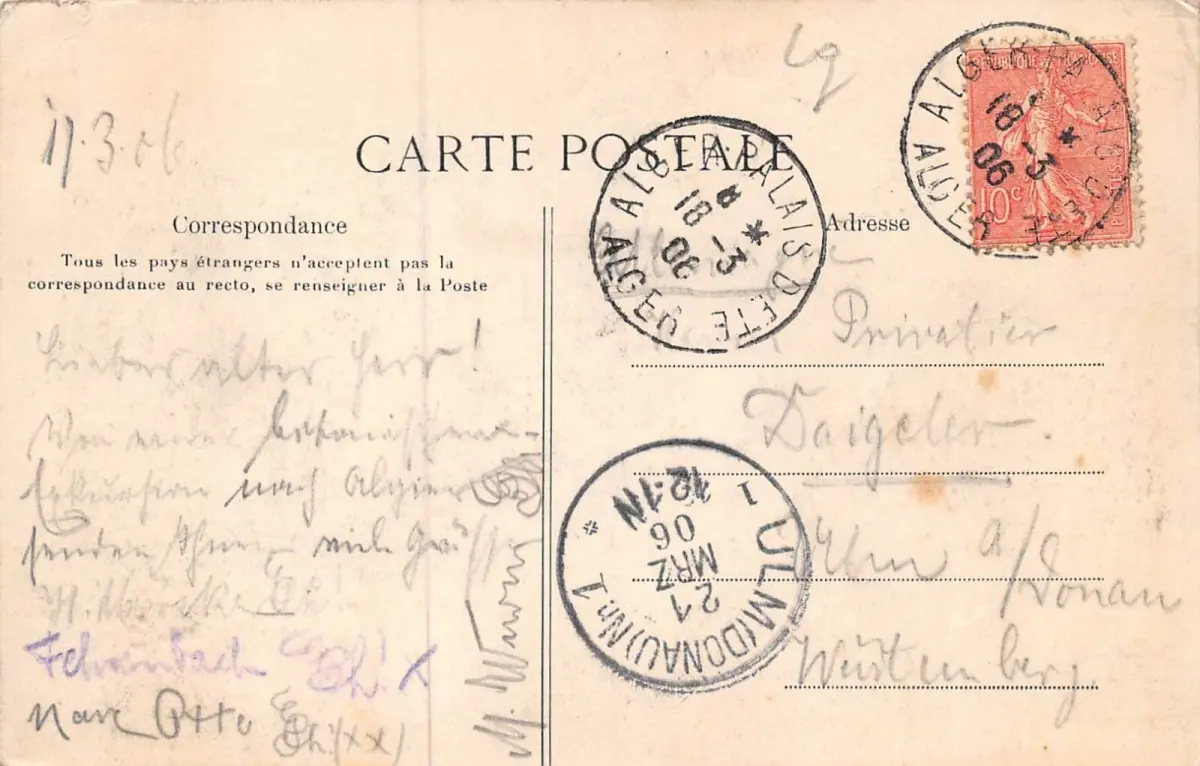 17.3.06
CARTE POSTALE
RÉPUBLIQUE FRANÇAISE
10c
ALGER-PALAIS D'ÉTÉ
18 -3
06
ALGER
ALGER-PALAIS D'ÉTÉ
18 -3
06
ALGER
Correspondance
Tous les pays étrangers n'acceptent pas la
correspondance au recto, se renseigner à la Poste
Lieber alter Herr!
Von einer botanischen
Exkursion nach Algier
senden Ihnen viele Grüße
Marc Otto
(xx)
M.
Adresse
Privatier
Daigeler.
Ulm a/Donau
Württemberg.
ULM (DONAU) Nr 1
21
MRZ
06
12-1N
1